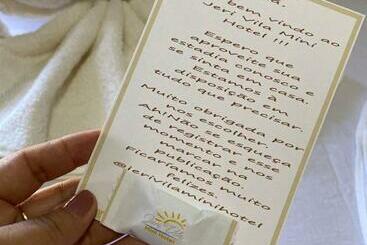 bem vindo ao
Jeri Vila Mini
Hotel !!!
Espero que
aproveite sua
estadia conosco e
se sinta em casa.
Estamos à
disposição em
tudo que precisar.
Muito obrigada por
nos escolher.
Ah!Não se esqueça
de registrar esse
momento e nos
marcar na
publicação.
Ficaríamos muito
felizes.
@jerivilaminihotel